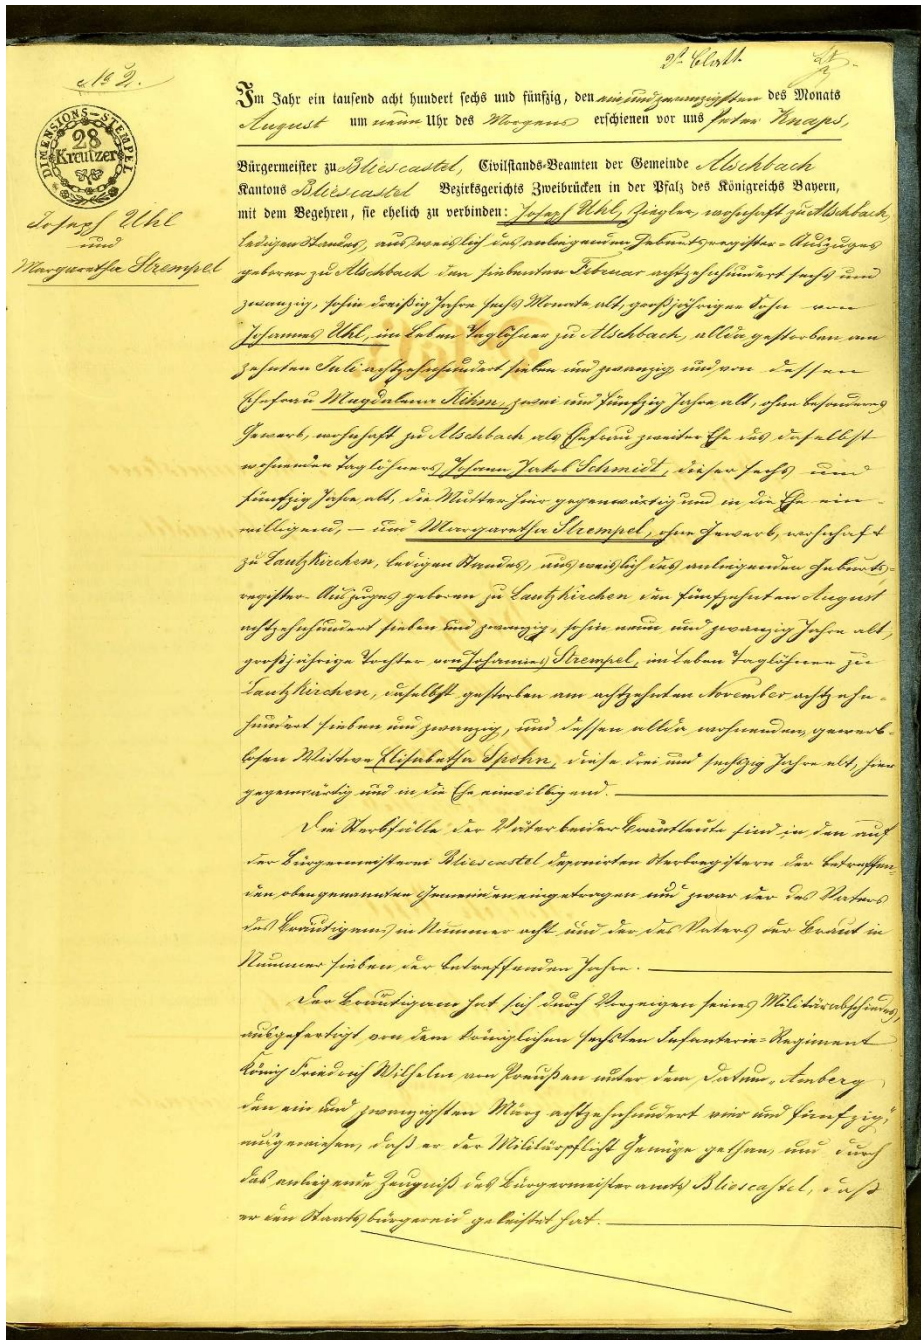 2s Blatt.
No 2.
DIMENSIONS-STEMPEL
28
Kreutzer
Joseph Uhl
und
Margaretha Strempel
Im Jahr ein tausend acht hundert sechs und fünfzig, den ein und zwanzigsten des Monats
August um neun Uhr des Morgens erschienen vor uns Peter Knaps,
Bürgermeister zu Bliescastel, Civilstands-Beamten der Gemeinde Alschbach
Kantons Bliescastel Bezirksgerichts Zweibrücken in der Pfalz des Königreichs Bayern,
mit dem Begehren, sie ehelich zu verbinden: Joseph Uhl, Ziegler, wohnhaft zu Alschbach,
ledigen Standes, ausweislich des anliegenden Geburtsregister-Auszuges
geboren zu Alschbach den siebenten Februar achtzehnhundert sechs und
zwanzig, sohin dreißig Jahre sechs Monate alt, großjähriger Sohn von
Johannes Uhl, im Leben Taglöhner zu Alschbach, allda gestorben am
zehnten Juli achtzehnhundert sieben und zwanzig und von dessen
Ehefrau Magdalena Kihm, zwei und fünfzig Jahre alt, ohne besonderes
Gewerb, wohnhaft zu Alschbach als Ehefrau zweiter Ehe des daselbst
wohnenden Taglöhners Johann Jakob Schmidt, dieser sechs und
fünfzig Jahre alt, die Mutter hier gegenwärtig und in die Ehe ein-
willigend, – und Margaretha Strempel, ohne Gewerb, wohnhaft
zu Lautzkirchen, ledigen Standes, ausweislich des anliegenden Geburts-
register-Auszuges geboren zu Lautzkirchen den fünfzehnten August
achtzehnhundert sieben und zwanzig, sohin neun und zwanzig Jahre alt,
großjährige Tochter von Johannes Strempel, im Leben Taglöhner zu
Lautzkirchen, daselbst gestorben am achtzehnten November achtzehn-
hundert sieben und zwanzig, und dessen allda wohnenden, gewerb-
losen Wittwe Elisabetha Spohn, diese drei und sechszig Jahre alt, hier
gegenwärtig und in die Ehe einwilligend.
Die Sterbfälle der Väter beider Brautleute sind in den auf
der Bürgermeisterei Bliescastel deponirten Sterbregistern der betreffen-
den obengenannten Gemeinden eingetragen und zwar der des Vaters
des Bräutigams in Nummer acht und der des Vaters der Braut in
Nummer sieben der betreffenden Jahre.
Der Bräutigam hat sich durch Vorzeigen seines Militärabschiedes,
ausgefertigt von dem Königlichen sechsten Infanterie-Regiment
König Friedrich Wilhelm von Preußen unter dem Datum „Amberg
den ein und zwanzigsten März achtzehnhundert vier und fünfzig",
ausgewiesen, daß er der Militärpflicht Genüge gethan, und durch
das anliegende Zeugniß des Bürgermeisteramts Bliescastel, daß
er den Staatsbürgereid geleistet hat.